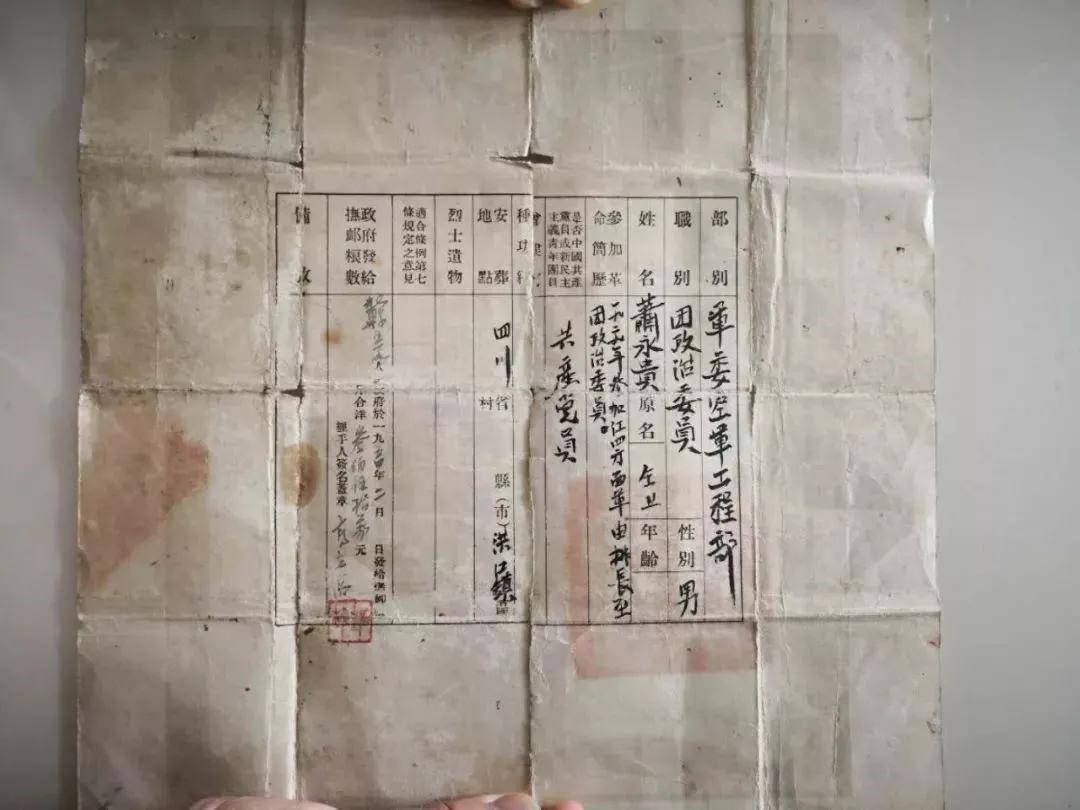 部別 軍委空軍工程部
職別 团政治委員 性別 男
姓名 蕭永貴 原名 年齡
參加革命簡歷 参加江四方面軍由排長至
团政治委員。
是否中國共產
黨員或新民主
主義青年團員
共產党員
安葬地點 四川省 縣(市)洪口鎮 村
烈士遺物
適合條例第七
條規定之意見
政府發給
撫卹糧數
府於一九五四年二月 日發給
合洋 元
經手人簽名蓋章
備攷